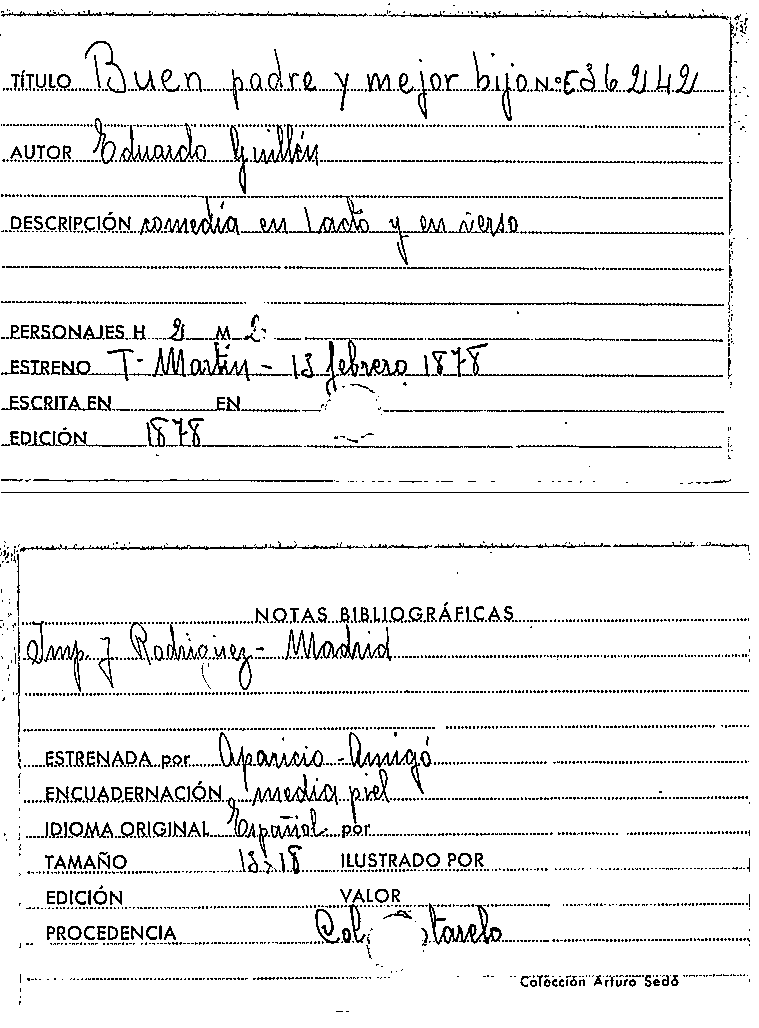 TÍTULO Buen padre y mejor hijo N.º E36242
AUTOR Eduardo Guillén
DESCRIPCIÓN comedia en 1 acto y en verso
PERSONAJES H 2 M 2
ESTRENO T- Martín - 13 febrero 1878
ESCRITA EN EN
EDICIÓN 1878
NOTAS BIBLIOGRÁFICAS
Imp. J Rodriguez - Madrid
ESTRENADA por Aparicio - Amigó
ENCUADERNACIÓN media piel
IDIOMA ORIGINAL Español por
TAMAÑO 13 18 ILUSTRADO POR
EDICIÓN VALOR
PROCEDENCIA Col
Colección Arturo Sedó